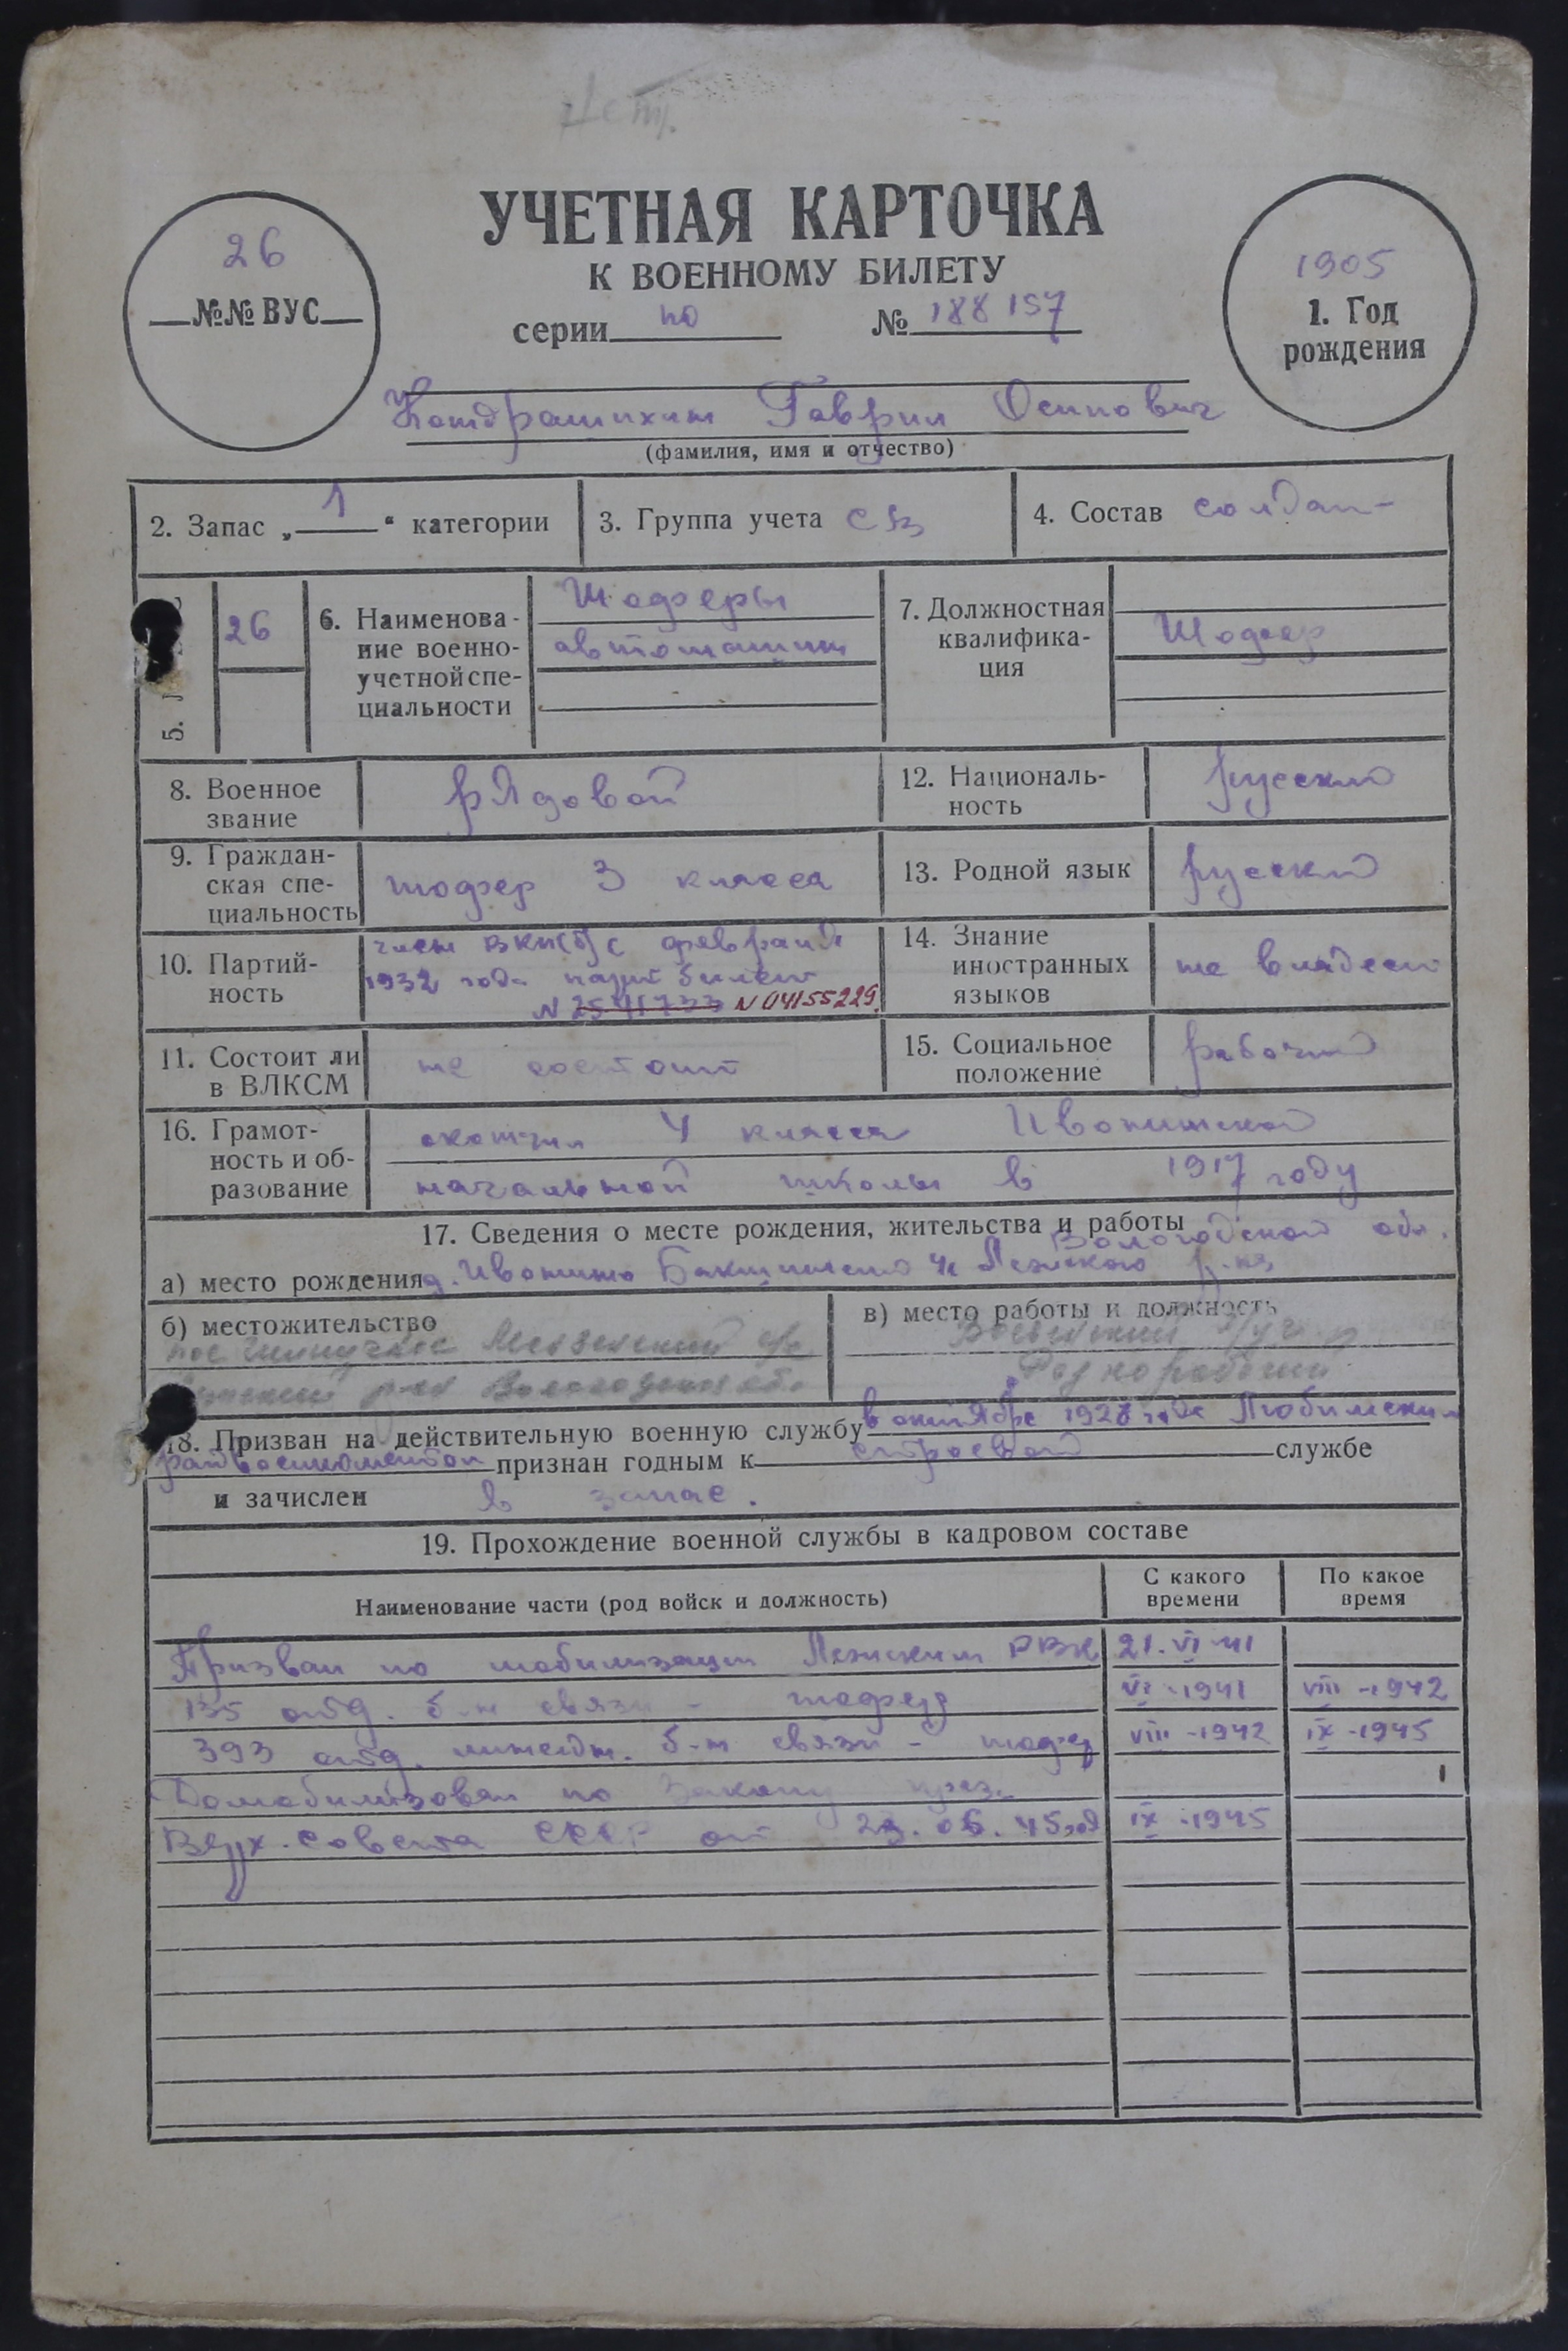 УЧЕТНАЯ КАРТОЧКА
К ВОЕННОМУ БИЛЕТУ
26
№№ ВУС
серии по № 188157
1905
1. Год
рождения
Кондрашихин Гаврил Осипович
(фамилия, имя и отчество)
2. Запас „ 1 “ категории
3. Группа учета СВ
4. Состав солдат-
5.
26
6. Наименова-
ние военно-
учетной спе-
циальности
Шофферы
автомашин
7. Должностная
квалифика-
ция
Шоффер
8. Военное
звание
рядовой
12. Националь-
ность
русский
9. Граждан-
ская спе-
циальность
шоффер 3 класса
13. Родной язык
русский
10. Партий-
ность
член ВКП(б) с февраля
1932 года парт билет
N 2541733 N 04155229.
14. Знание
иностранных
языков
не владеет
11. Состоит ли
в ВЛКСМ
не состоит
15. Социальное
положение
рабочий
16. Грамот-
ность и об-
разование
окончил 4 класса Ивонинской
начальной школы в 1917 году
17. Сведения о месте рождения, жительства и работы
Вологодской обл.
а) место рождения д. Ивонино Лежского р-на
б) местожительство
пос
р-он Вологодской об.
в) место работы и должность
Разнорабочий
18. Призван на действительную военную службу в октябре 1928 года Любимским
райвоенкоматом признан годным к строевой службе
и зачислен в запас.
19. Прохождение военной службы в кадровом составе
Наименование части (род войск и должность)
С какого
времени
По какое
время
Призван по мобилизации Лежским РВК 21.VI-41
135 отд. б-н связи - шоффер VI-1941 VIII-1942
393 отд. линейн. б-н связи - шоффер VIII-1942 IX-1945
Домобилизован по Закону през.
Верх. Совета СССР от 23.06.45 год IX-1945